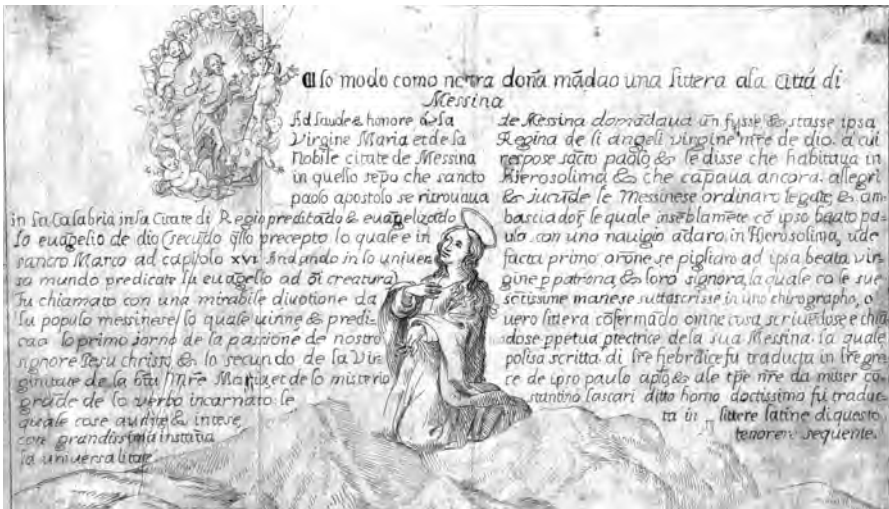 lo modo como nr̃a doña mãdao una littera ala Cittá di
Messina
Ad laude & honore dela
Virgine Maria et de la
Nobile citate de Messina
in quello tẽpo che sancto
paolo apostolo se ritrouaua
in la Calabria in la Citate di Regio predicãdo & euãgelizado
lo euãgelio de dio (secũdo q̃llo precepto lo quale e in
sancto Marco ad capitolo xvi Andando in lo univer
so mundo predicate lu euãgelio ad õi creatura)
fu chiamato con una mirabile diuotione da
lu populo messinese, lo quale uinne & predi-
cao lo primo jorno de la passione de nostro
signore Jesu christo, & lo secundo de la Vir
ginitate de la btã Mr̃e Maria et de lo misterio
grãde de lo verbo incarnato le
quale cose audite & intese,
con grandissima instãtia
la universalitate
de Messina domãdaua ũn fusse, & stasse ipsa
Regina de li angeli virgine mr̃e de dio. a cui
respose sacto paolo & le disse che habitaua in
Hierosolima & che capaua ancora. allegri
& jucũde le Messinese ordinaro legate, & am-
basciadorj le quale insẽblamẽte cõ ipso beato pa-
ulo con uno navigio ãdaro in Hierosolima, ũde
facta primo orõne se pigliaro ad ipsa beata vir-
gine p patrona, & loro signora, la quale cõ le sue
sctissime mane se suttascrisse in uno chirographo, o
uero littera cõfermãdo omne cosa scriuẽdose e chiã
dose ppetua ptectrice dela sua Messina. la quale
polisa scritta di lr̃e hebraice fu traducta in lr̃e gre
ce de ipso paulo apl̃o & ale tp̃e nr̃e da misser cõ
stantino lascari ditto homo doctissimo fu traduc-
ta in littere latine di questo
tenore sequente.